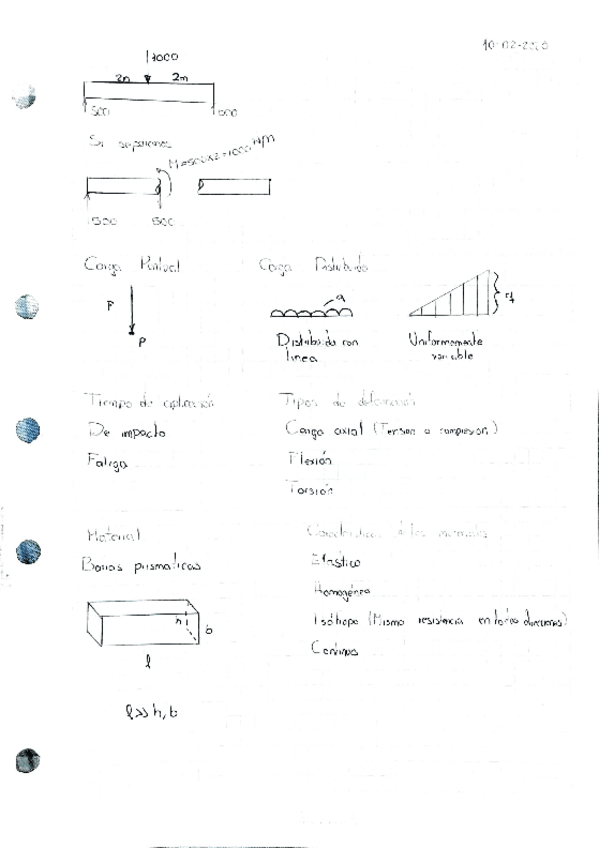 1000
2m 2m
500 500
Si separamos
M=500x2=1000 N/m
500 500
Carga Puntual Carga Distribuida
F
P
q
Distribuida con
linea
q
Uniformemente
variable
Tiempo de aplicación
De impacto
Fatiga
Tipos de deformación
Carga axial (Tension o compresion)
Flexión
Torsión
Material
Barras prismaticas
h
b
l
l>>h,b
Caracteristicas de los materiales
Elastico
Homogéneo
Isótropo (Misma resistencia en todas direcciones)
Continuo